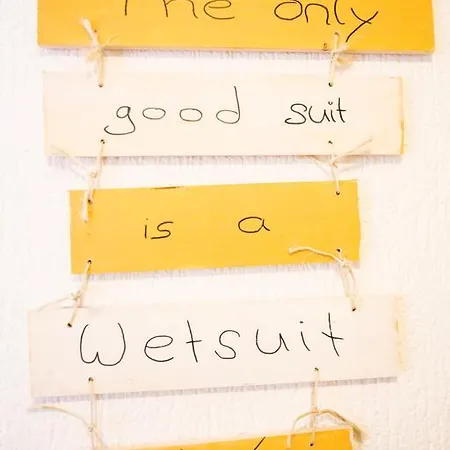 The only
good suit
is a
Wetsuit